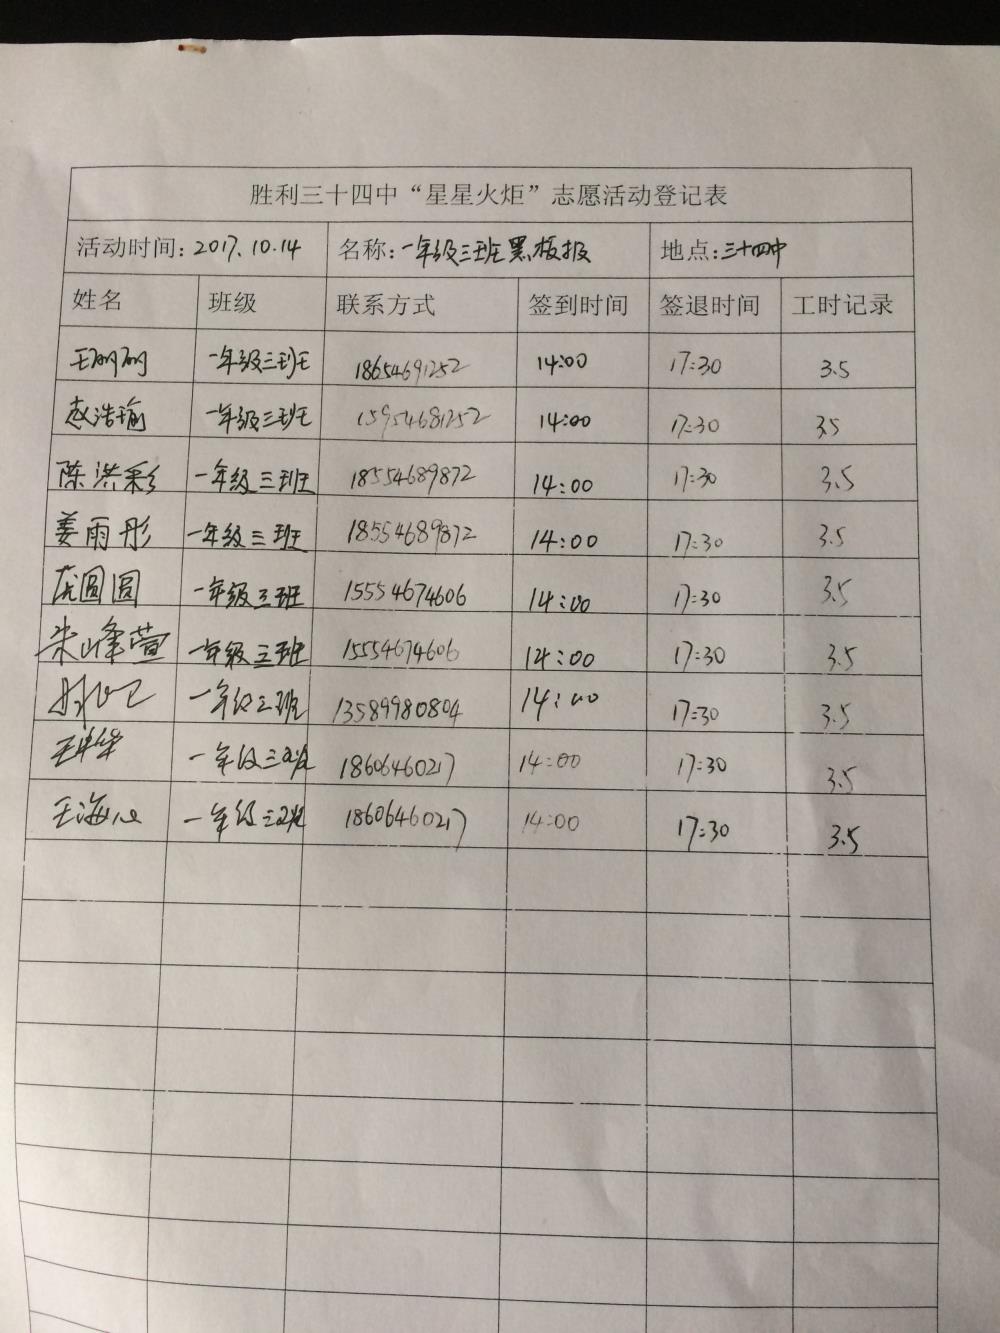 胜利三十四中“星星火炬”志愿活动登记表
活动时间：2017.10.14 名称：一年级三班黑板报 地点：三十四中
姓名 班级 联系方式 签到时间 签退时间 工时记录
一年级三班 18654691252 14:00 17:30 3.5
赵浩瑜 一年级三班 15954681252 14:00 17:30 3.5
陈洪彩 一年级三班 18554689872 14:00 17:30 3.5
姜雨彤 一年级三班 18554689872 14:00 17:30 3.5
庞圆圆 一年级三班 15554674606 14:00 17:30 3.5
朱峰萱 一年级三班 15554674606 14:00 17:30 3.5
一年级三班 13589980804 14:00 17:30 3.5
一年级三班 18606460217 14:00 17:30 3.5
王海心 一年级三班 18606460217 14:00 17:30 3.5